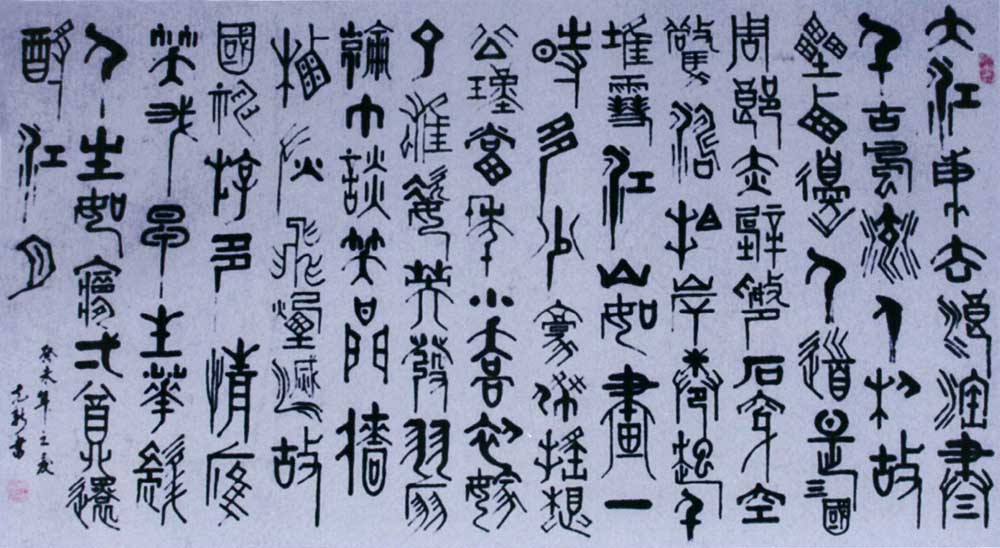 大江東去浪淘盡
千古風流人物故
壘西邊人道是三國
周郎赤壁亂石穿空
驚濤拍岸捲起千
堆雪江山如畫一
時多少豪傑遙想
公瑾當年小喬初嫁
了雄姿英發羽扇
綸巾談笑間檣
櫓灰飛煙滅故
國神遊多情應
笑我早生華髮
人生如夢弌尊還
酹江月
癸未年之夏
書